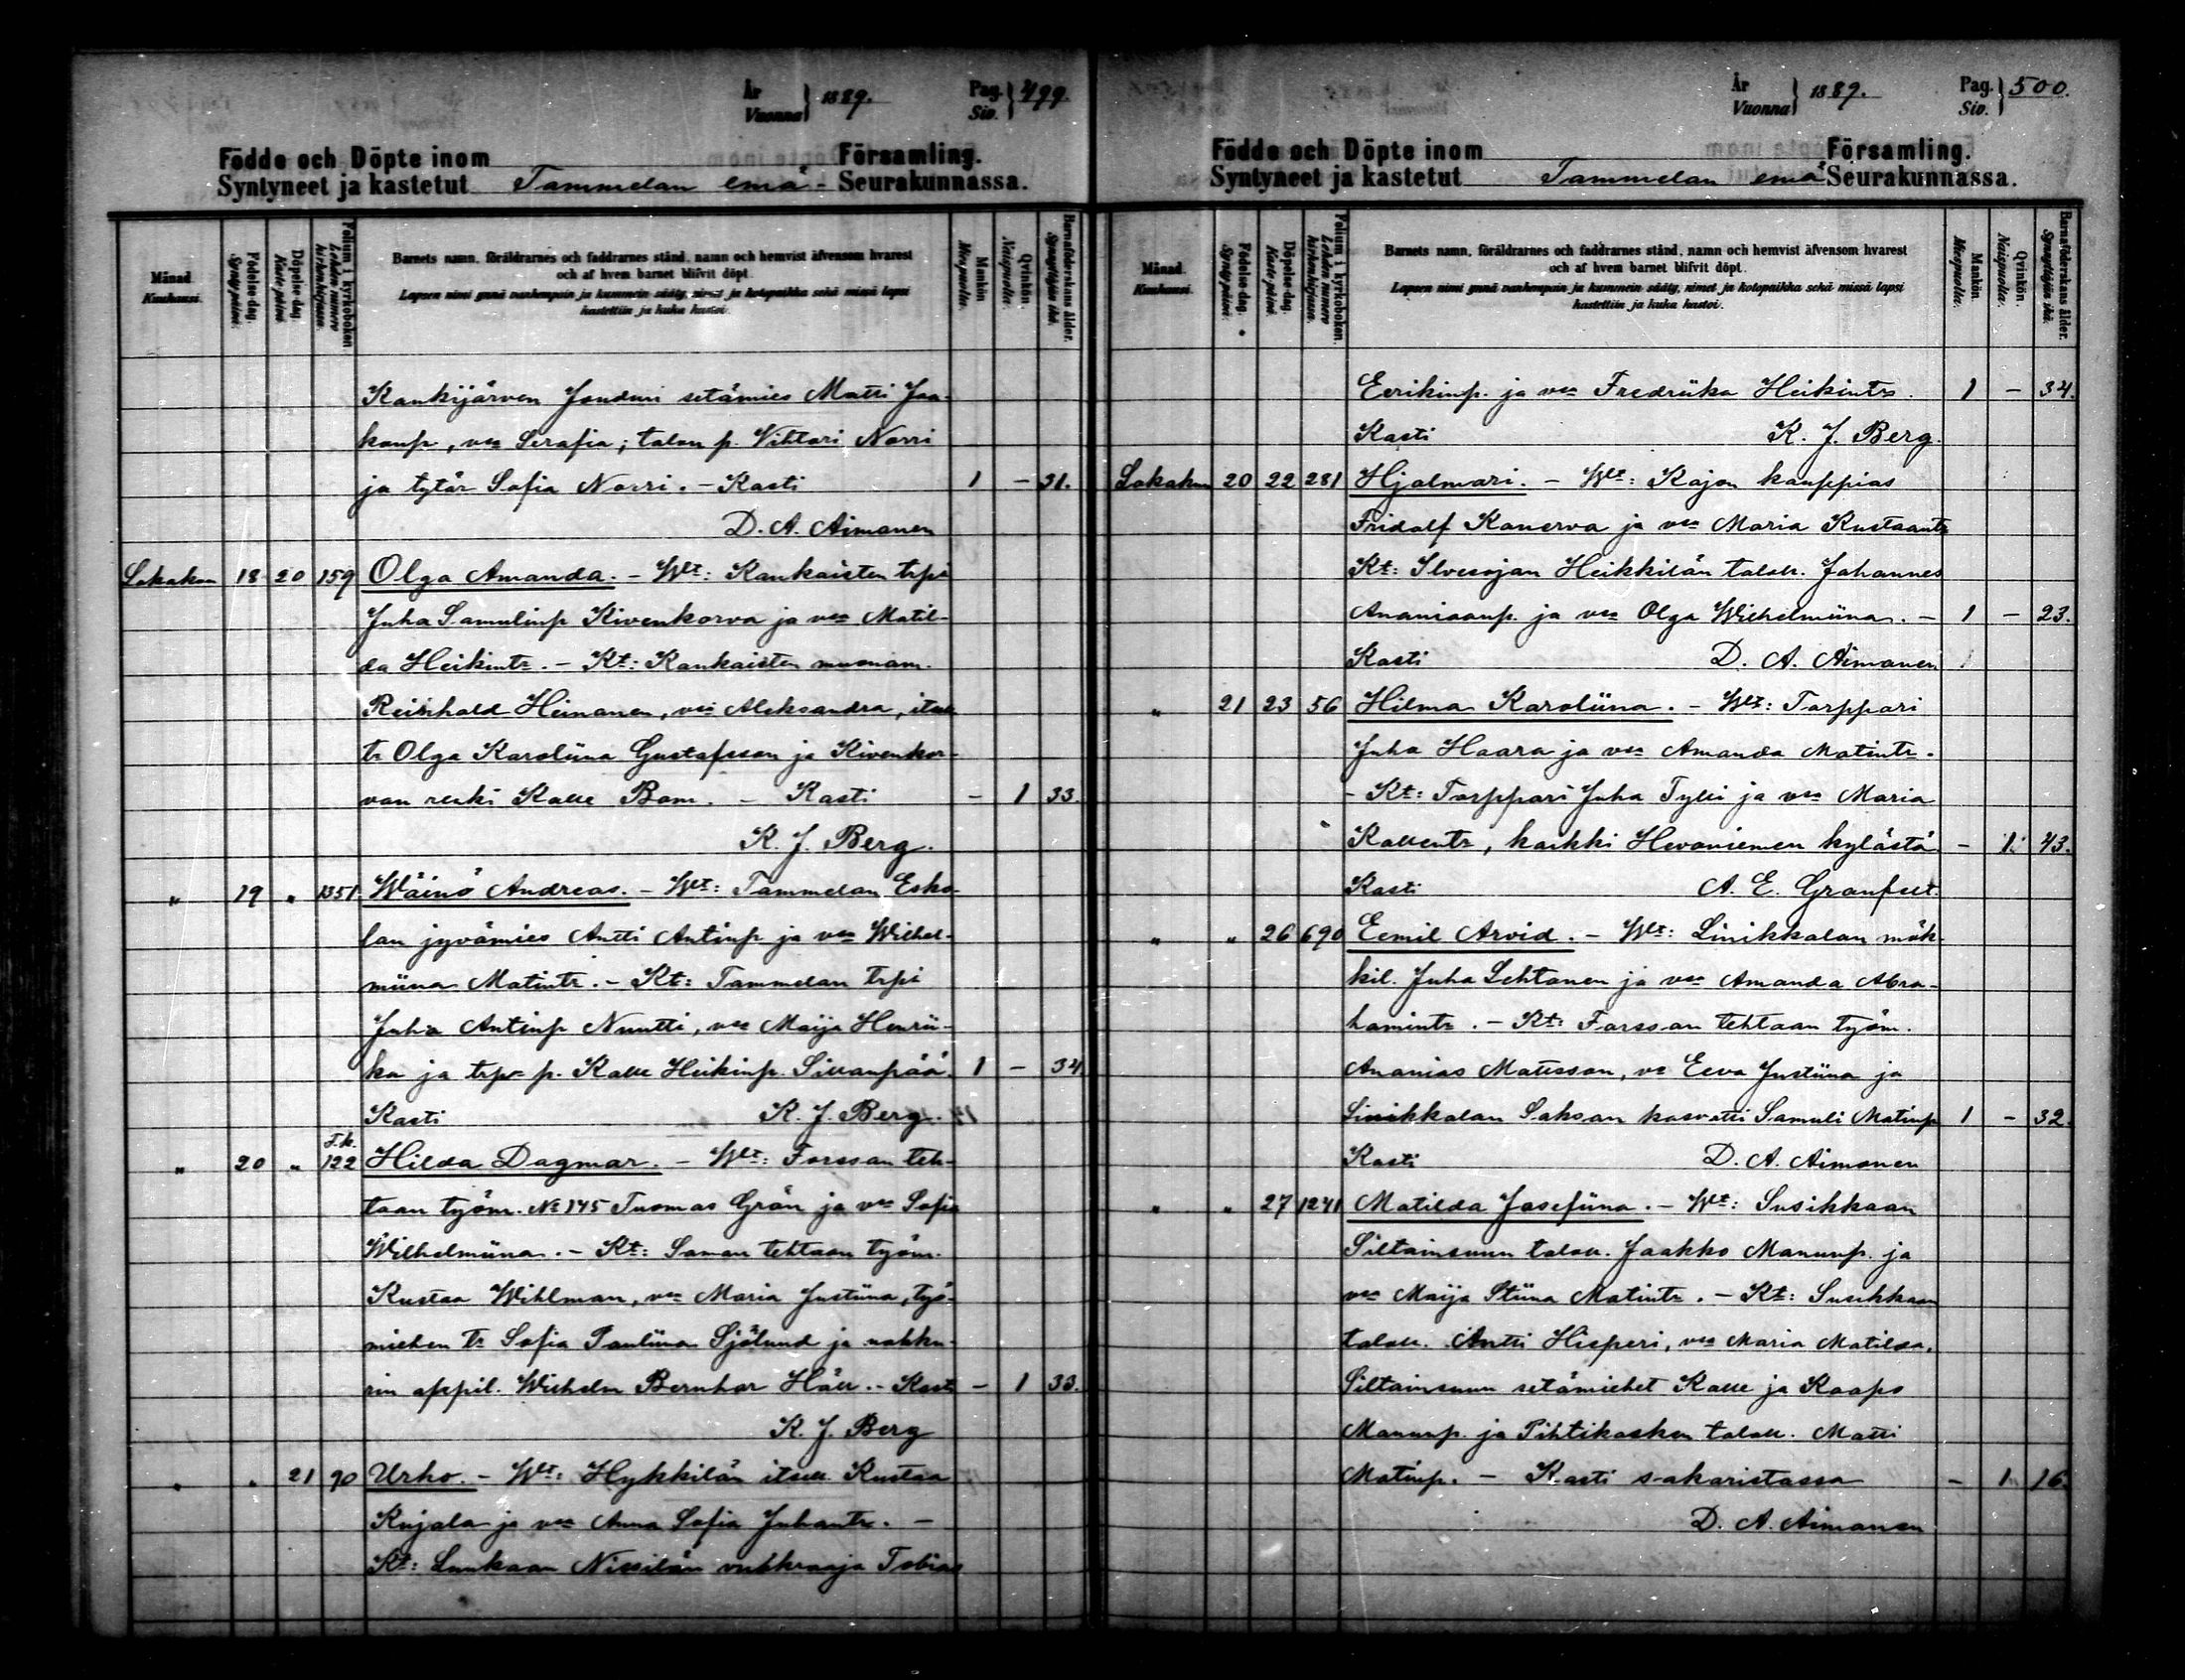 År
Vuonna 1889. Pag. Siv. 499.
Födde och Döpte inom Församling.
Syntyneet ja kastetut Tammelan emä- Seurakunnassa.
Månad. Kuukausi.
Födelse-dag. Syntypäivä.
Döpelse-dag. Kastepäivä.
Folium i kyrkoboken. Lehden numero kirkonkirjassa.
Barnets namn, föräldrarnes och faddrarnes stånd, namn och hemvist äfvensom hvarest
och af hvem barnet blifvit döpt.
Lapsen nimi ynnä vanhempain ja kummein sääty, nimet ja kotopaikka sekä missä lapsi
kastettiin ja kuka kastoi.
Mankön. Miespuolia.
Qvinkön. Naispuolia.
Barnaföderskans ålder. Synnyttäjän ikä.
Kankijärven Jonduni setämies Matti Jaa-
konp., vaa Serafia; talon p. Vihtori Norri
ja tytär Sofia Norri. - Kasti 1 - 31.
D. A. Aimanen
Lokakuu 18 20 159 Olga Amanda. - Wt: Kankaisten trpi
Juha Samulinp Kivenkorva ja vaa Matil-
da Heikintr. - Kt: Kankaisten muonam.
Reinhold Heinanen, vaa Aleksandra, itsell
tr Olga Karoliina Gustafsson ja Kivenkor-
van renki Kalle Bom. - Kasti - 1 33.
K. J. Berg.
" 19 " 1351 Wäinö Andreas. - Wt: Tammelan Esko-
lan jyvämies Antti Antinp ja vaa Wilhel-
miina Matintr. - Kt: Tammelan trpi
Juha Antinp Nuutti, vaa Maija Henrii-
ka ja trp p. Kalle Heikinp. Sillanpää. 1 - 34
Kasti K. J. Berg.
" 20 " T.k. 122 Hilda Dagmar. - Wt: Forssan teh-
taan työm. No 145 Tuomas Grän ja vaa Sofia
Wilhelmiina. - Kt: Saman tehtaan työm.
Kustaa Wihlman, vaa Maria Justiina, työ-
miehen tr Sofia Pauliina Sjölund ja nahku-
rin oppil. Wilhelm Bernhar Häll. - Kasti - 1 33.
K. J. Berg
" " 21 90 Urho. - Wt: Hykkilän itsell. Kustaa
Kujala ja vaa Anna Sofia Juhantr. -
Kt: Lunkaan Nissilän vuokraaja Tobias
År
Vuonna 1889. Pag. Siv. 500.
Födde och Döpte inom Församling.
Syntyneet ja kastetut Tammelan emä Seurakunnassa.
Månad. Kuukausi.
Födelse-dag. Syntypäivä.
Döpelse-dag. Kastepäivä.
Folium i kyrkoboken. Lehden numero kirkonkirjassa.
Barnets namn, föräldrarnes och faddrarnes stånd, namn och hemvist äfvensom hvarest
och af hvem barnet blifvit döpt.
Lapsen nimi ynnä vanhempain ja kummein sääty, nimet ja kotopaikka sekä missä lapsi
kastettiin ja kuka kastoi.
Mankön. Miespuolia.
Qvinkön. Naispuolia.
Barnaföderskans ålder. Synnyttäjän ikä.
Eerikinp. ja vaa Fredriika Heikintr. 1 - 34.
Kasti K. J. Berg.
Lokakuu 20 22 281 Hjalmari. - Wt: Kojon kauppias
Fridolf Kanerva ja vaa Maria Kustaantr
Kt: Ilvesojan Heikkilän talon. Johannes
Ananiaanp. ja vaa Olga Wilhelmiina. - 1 - 23.
Kasti D. A. Aimanen
" 21 23 56 Hilma Karoliina. - Wt: Torppari
Juha Haara ja vaa Amanda Matintr.
- Kt: Torppari Juha Tylli ja vaa Maria
Kallentr, kaikki Hevoniemen kylästä - 1 43.
Kasti A. E. Granfelt.
" " 26 690 Eemil Arvid. - Wt: Linikkalan mök-
kil. Juha Lehtonen ja vaa Amanda Abra-
hamintr. - Kt: Forssan tehtaan työm.
Ananias Matsson, va Eeva Justiina ja
Linikkalan Saksan kasvatti Samuli Matinp 1 - 32.
Kasti D. A. Aimonen
" " 27 1241 Matilda Josefiina. - Wt: Susikkaan
Siltainsuun talon. Jaakko Manunp. ja
vaa Maija Stiina Matintr. - Kt: Susikkaan
talon. Antti Hisperi, vaa Maria Matilda,
Siltainsuun setämiehet Kalle ja Kaapo
Manunp. ja Pihtikosken talon. Matti
Matinp. - Kasti sakaristassa - 1 16.
D. A. Aimonen